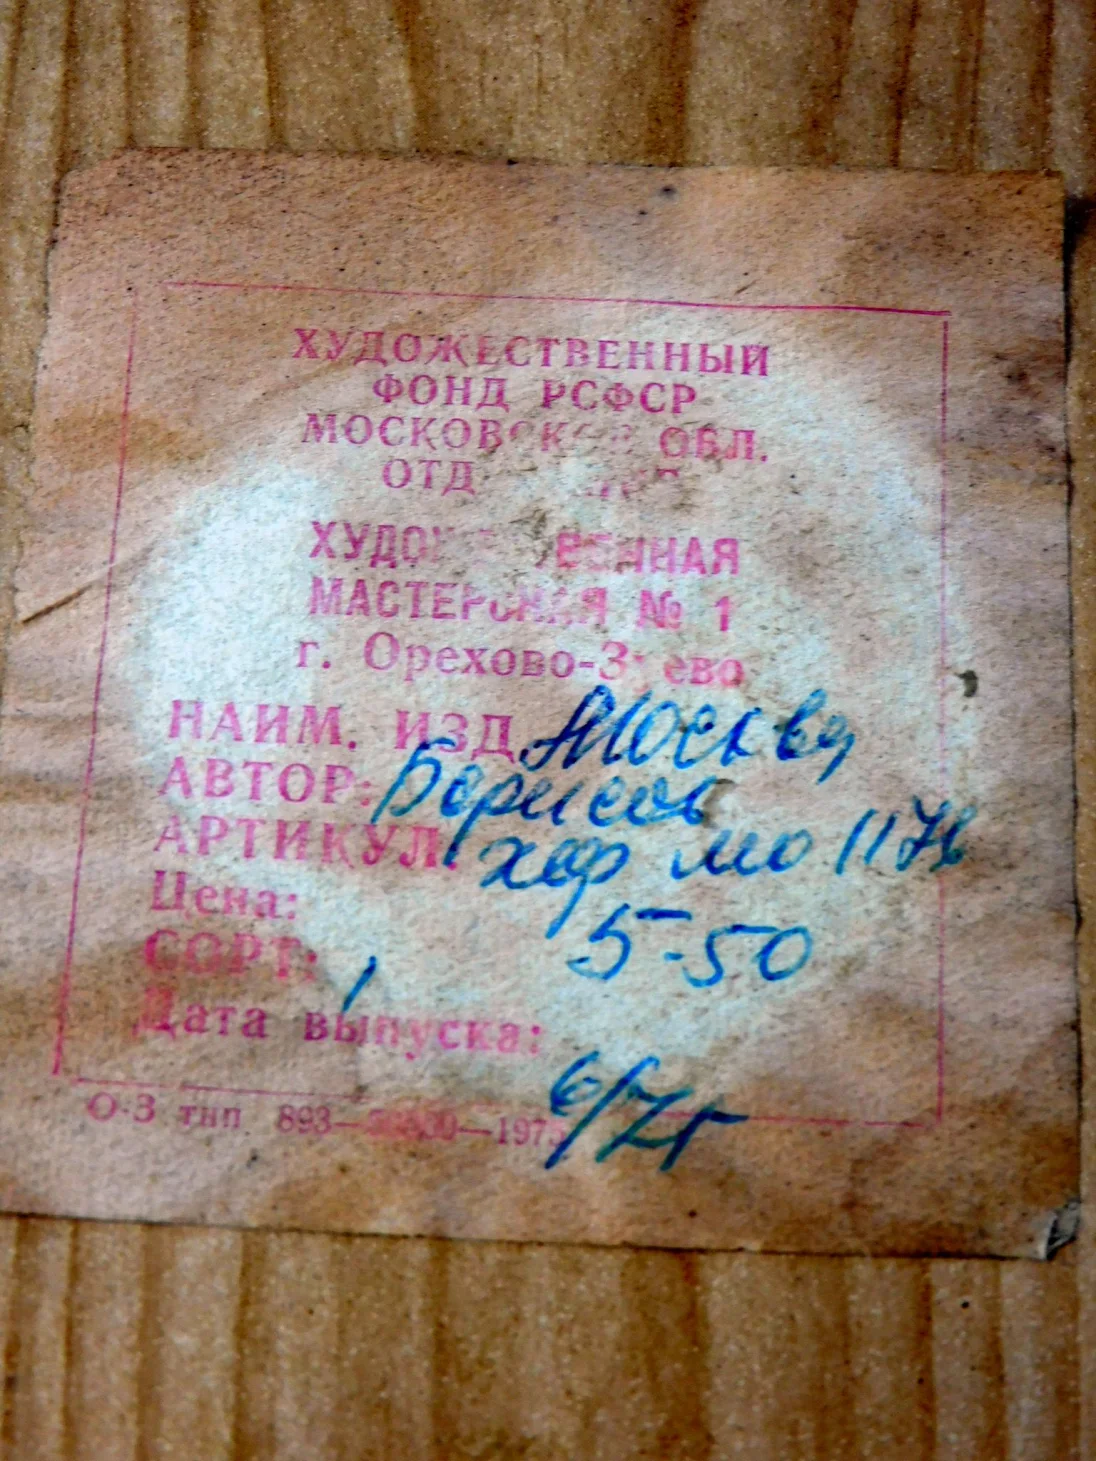 ХУДОЖЕСТВЕННЫЙ
ФОНД РСФСР
МОСКОВСКОЕ ОБЛ.
ОТД
ХУДОЖЕСТВЕННАЯ
МАСТЕРСКАЯ № 1
г. Орехово-Зуево
НАИМ. ИЗД. Москва
АВТОР: Борисов
АРТИКУЛ: хфр мо 1176
Цена: 5-50
СОРТ: 1
Дата выпуска:
О-З тип 893 1975